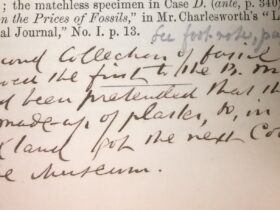 ; the matchless specimen in Case D. (ante, p. 340)
on the Prices of Fossils," in Mr. Charlesworth's "
al Journal," No. I. p. 13.
See foot note, pa
und Collection of fossil
ved the first to the B. M
d been pretended that th
made-up of plaster, &, in
land got the next Co
e Museum.